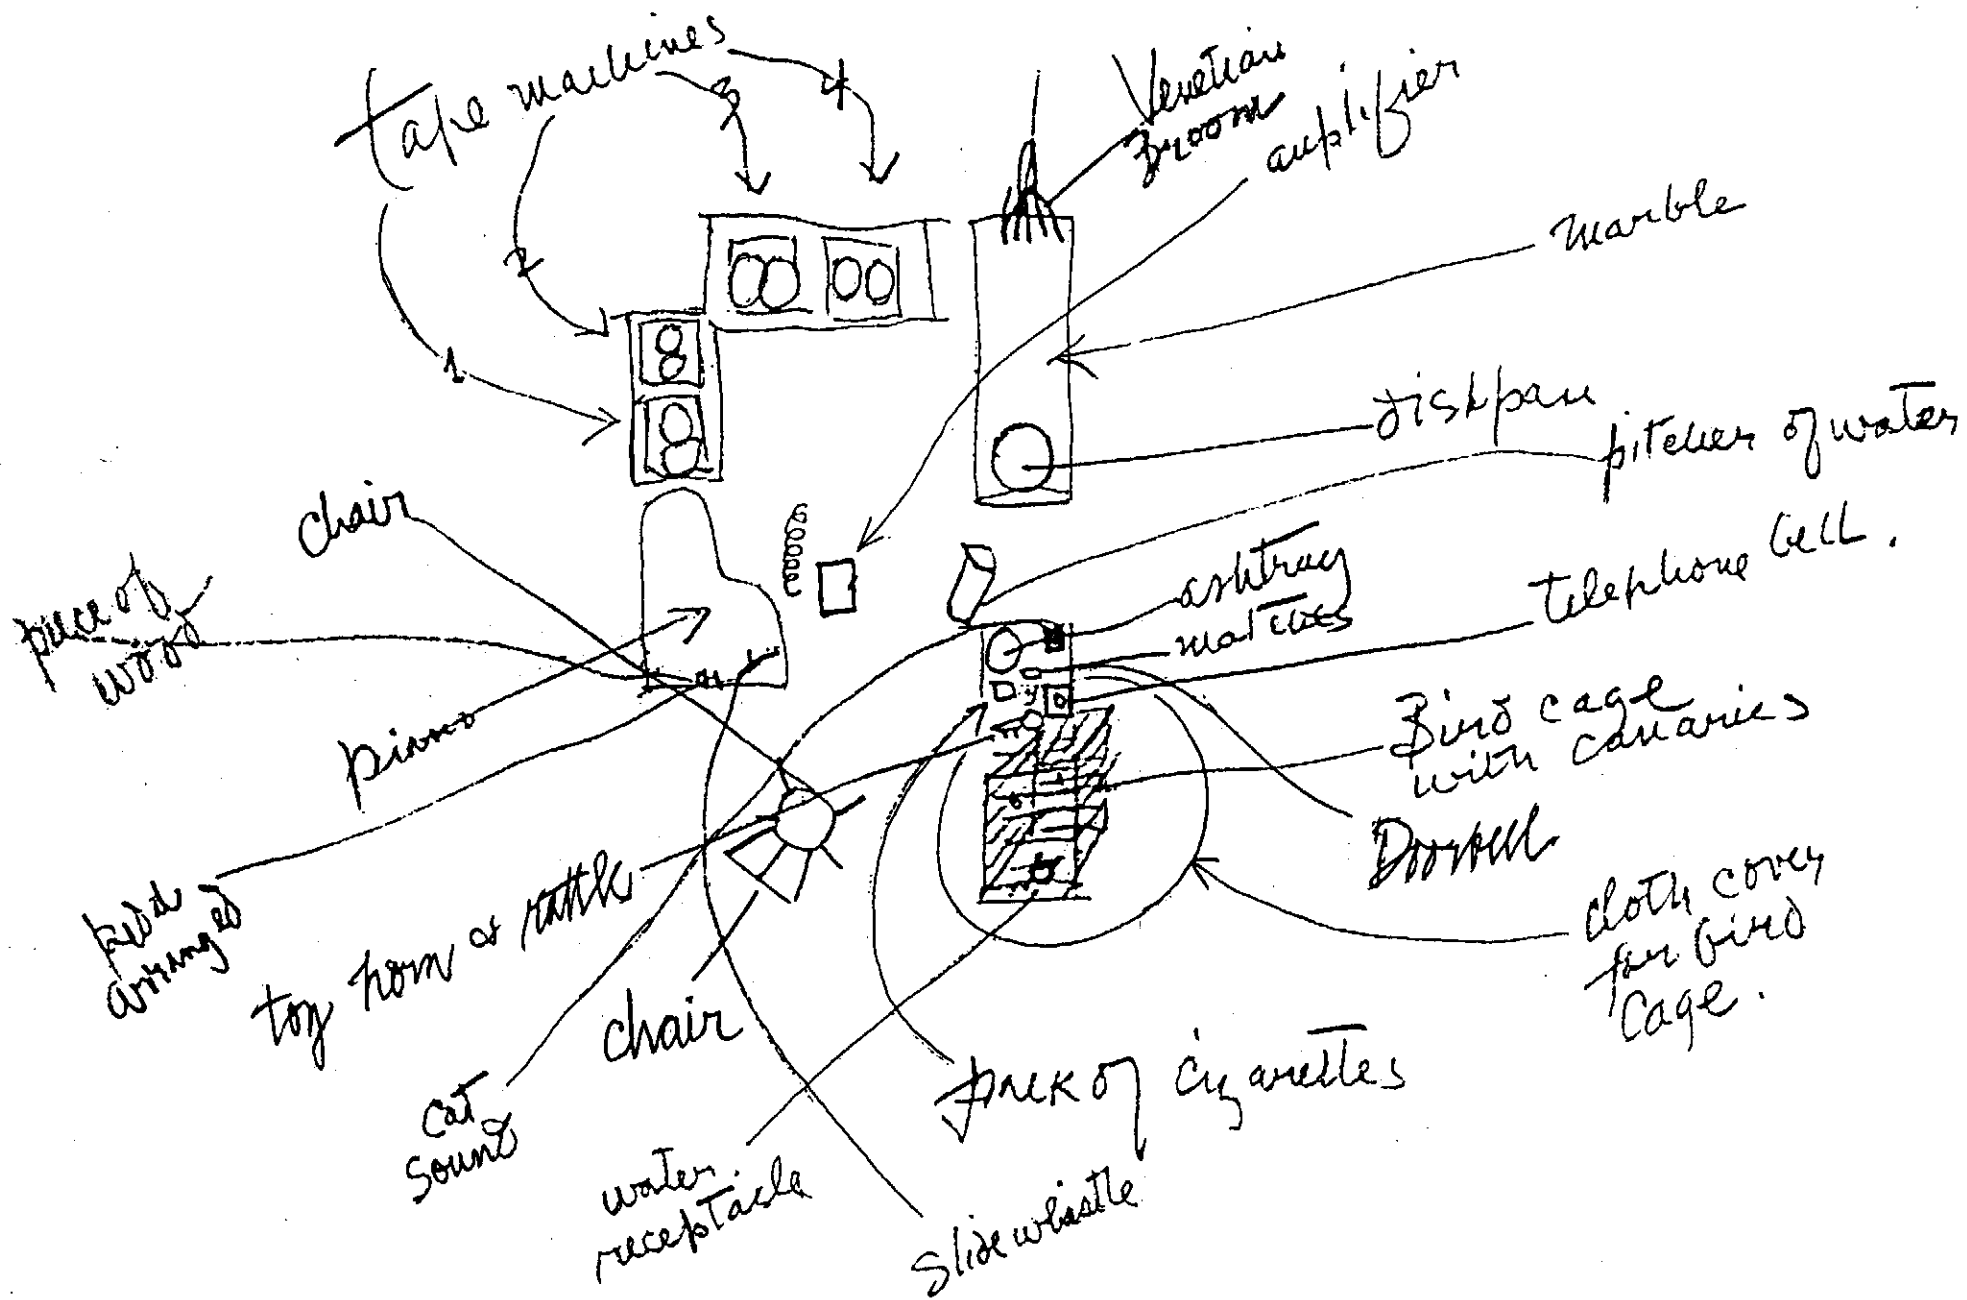 tape machines
3
4
2
1
Venetian
broom
amplifier
marble
dishpan
pitcher of water
chair
ashtray
matches
telephone bell.
piece of
wood
piano
Bird cage
with canaries
Doorbell
cloth cover
for bird
cage.
arranged
toy horn & rattle
chair
cat
sound
pack of cigarettes
water
receptacle
slide whistle